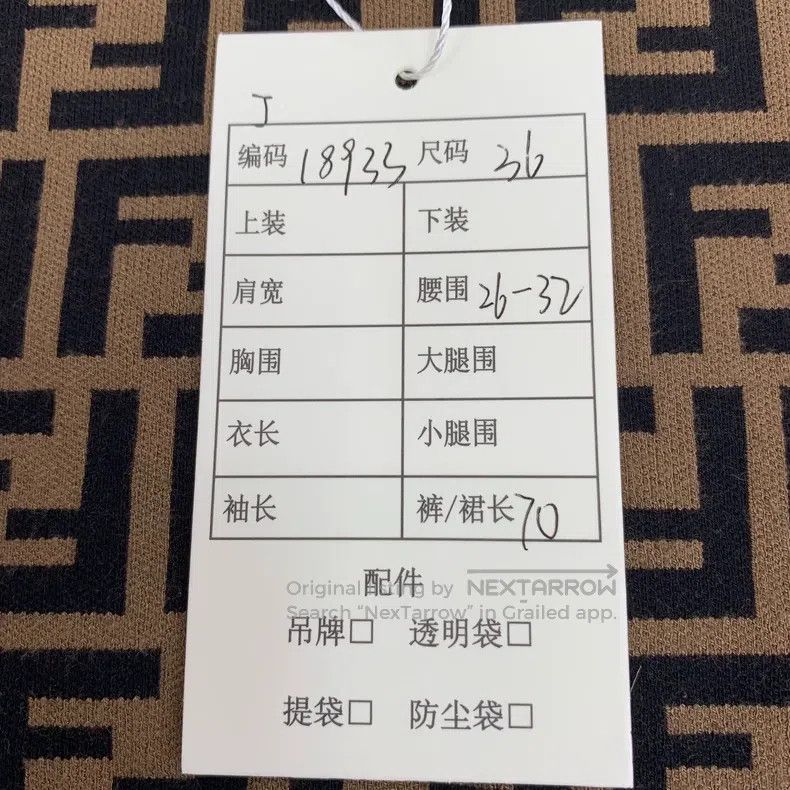 J
编码 18933 尺码 36
上装 下装
肩宽 腰围 26-32
胸围 大腿围
衣长 小腿围
袖长 裤/裙长 70
配件
Original listing by NEXTARROW
Search “NexTarrow” in Grailed app.
吊牌□ 透明袋□
提袋□ 防尘袋□